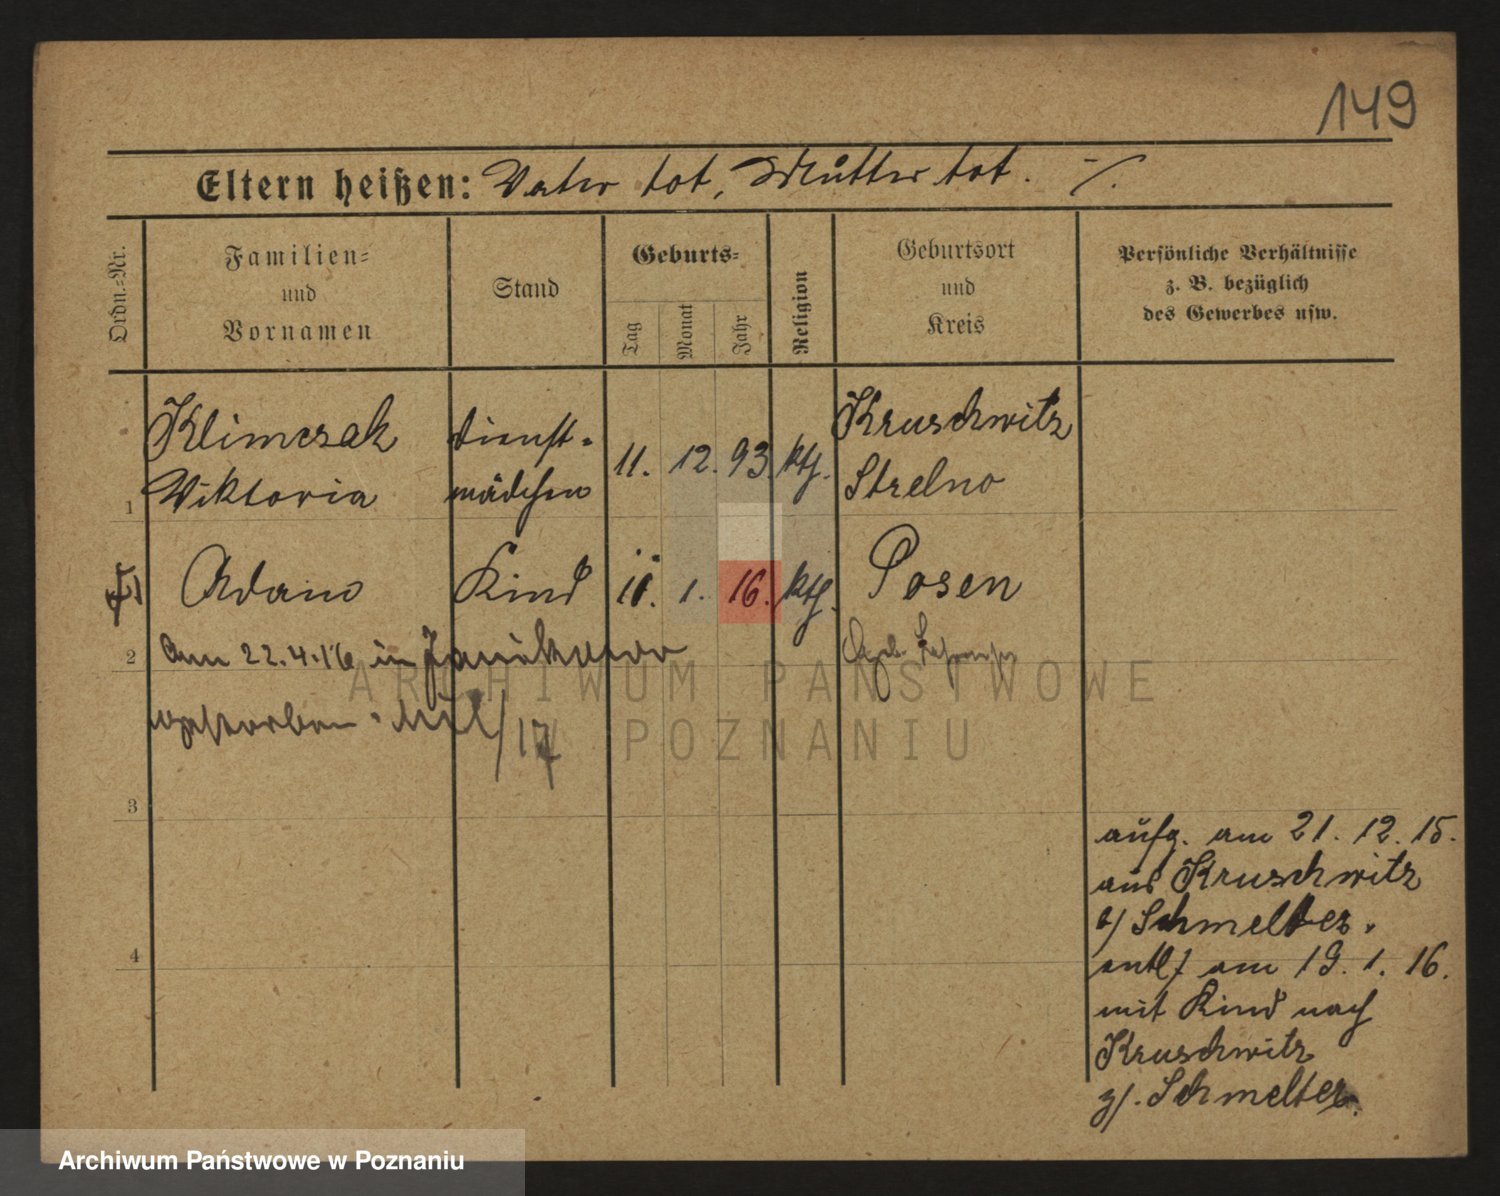 149
Eltern heißen: Vater tot, Mutter tot. -/.
Ordn.-Nr.
Familien-
und
Vornamen
Stand
Geburts-
Tag
Monat
Jahr
Religion
Geburtsort
und
Kreis
Persönliche Verhältnisse
z. B. bezüglich
des Gewerbes usw.
1
Klimczak
Viktoria
Dienst-
mädchen
11. 12. 93. kth.
Kruschwitz
Strelno
2
Adam
Kind
11. 1. 16. kth.
Posen
am 22.4.16 in
gestorben
/17
3
4
aufg. am 21. 12. 15.
aus Kruschwitz
b/ Schmelter.
entl. am 19. 1. 16.
mit Kind nach
Kruschwitz
z/. Schmelter.
ARCHIWUM PAŃSTWOWE
W POZNANIU
Archiwum Państwowe w Poznaniu